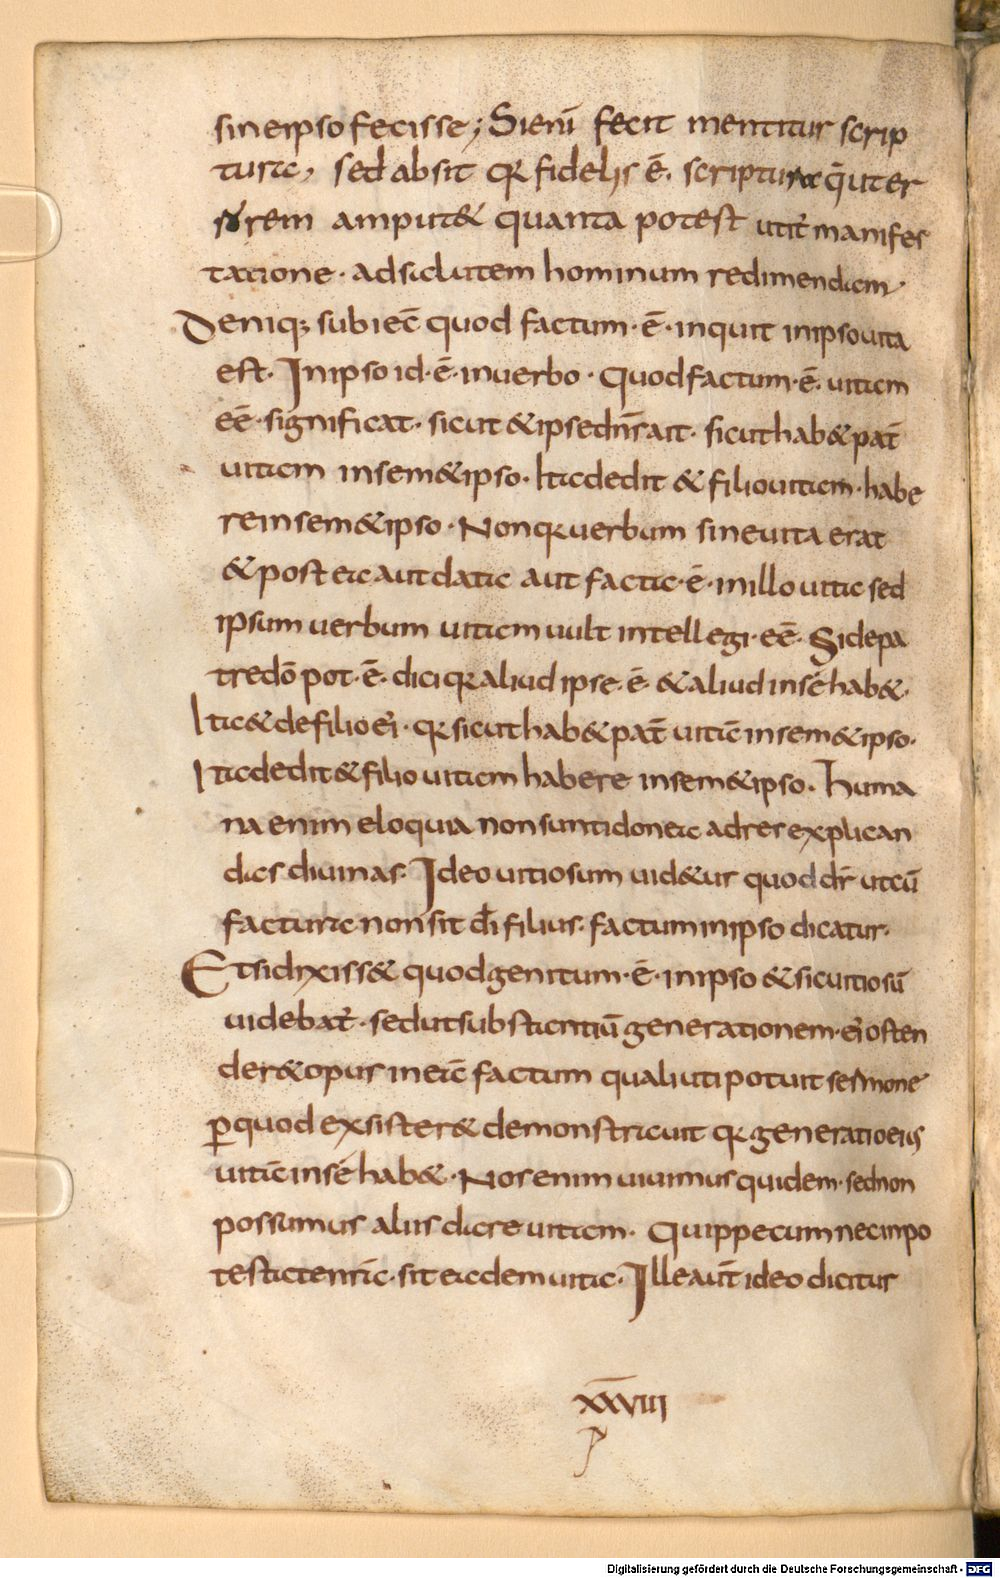 sineipso fecisse; Sienī fecit mentitur scrip
turae, sed absit qꝛ fidelis ē. scripturae q̄ uter
rorem amput& quanta potest utit᷑ manifes
tatione· ad salutem hominum redimendam·
Deniq; subiec̄ quod factum·ē· inquit inipso uita
est· Inipso id·ē· inuerbo· Quod factum·ē· uitam
eē· significat· sicut & ipse dn̄s ait· sicut hab& pat̄
uitam insem&ipso· Ita dedit & filio uitam· habe
re insem&ipso· Non qꝛ uerbum sine uita erat
& postea aut data aut facta·ē· inillo uita sed
ipsum uerbum uitam uult intellegi·eē· Si de pa
tre dō pot·ē· dici qꝛ aliud ipse·ē· & aliud insē hab&·
Ita & de filio ei᷒· qꝛ sicut hab& pat̄ uitā in sem&ipso·
Ita dedit & filio uitam habere insem&ipso· Huma
na enim eloquia non sunt idonea ad res explican
das diuinas· Ideo uitiosum uid&ur quod dr̄ ut cū
factura non sit dī filius· factum inipso dicatur·
Et si dixiss& quod genitum·ē· inipso & sic uitiosū
uidebat᷑· sed ut substantiū generationem·ei᷒ osten
der& opus ineā factum quali uti potuit sermone
ꝑ quod exsister& demonstrauit qꝛ generatio eius
uitā insē hab&· Nos enim uiuimus quidem· sed non
possumus aliis dare uitam· Quippe cum nec inpo
testate nr̄a· sit eadem uita· Ille aut̄ ideo dicitur
xxxviii
Digitalisierung gefördert durch die Deutsche Forschungsgemeinschaft - DFG